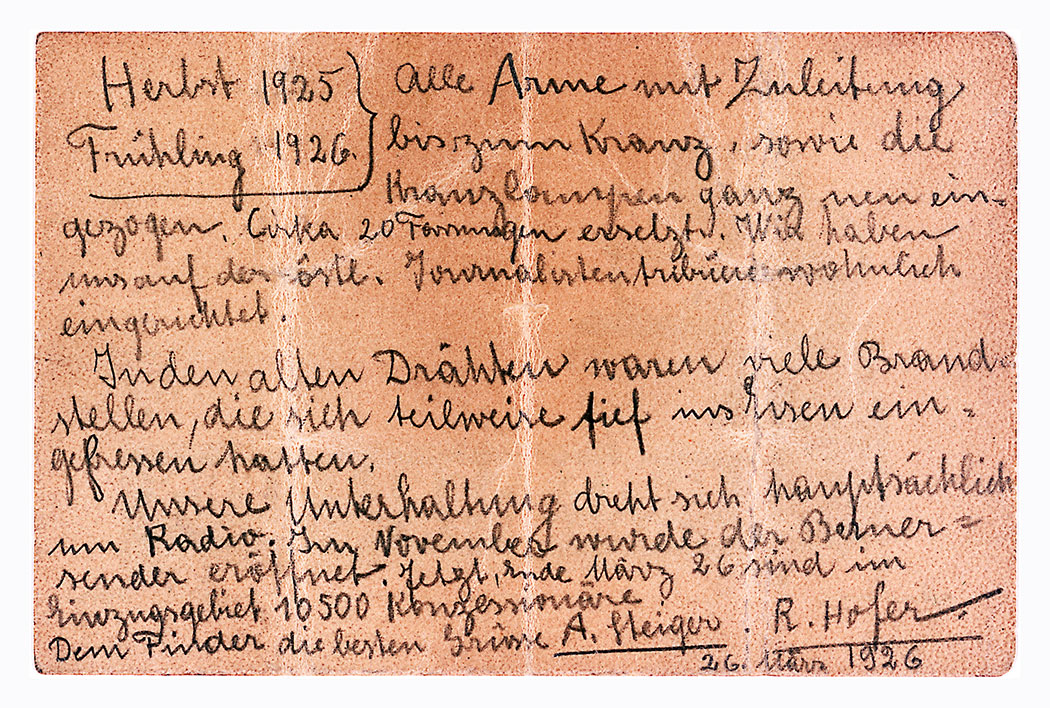 Herbst 1925 } Alle Arme mit Zuleitung
Frühling 1926. } bis zum Kranz, sowie die
Kranzlampen ganz neu ein-
gezogen. Cirka 20 Fassungen ersetzt. Wir haben
uns auf der östl. Journalistentribüne wohnlich
eingerichtet.
In den alten Drähten waren viele Brand-
stellen, die sich teilweise tief ins Eisen ein-
gefressen hatten.
Unsere Unterhaltung dreht sich hauptsächlich
um Radio. Im November wurde der Berner-
sender eröffnet. Jetzt, Ende März 26 sind im
Einzugsgebiet 10500 Konzessionäre
Dem Finder die besten Grüsse A. Steiger. R. Hofer
26. März 1926